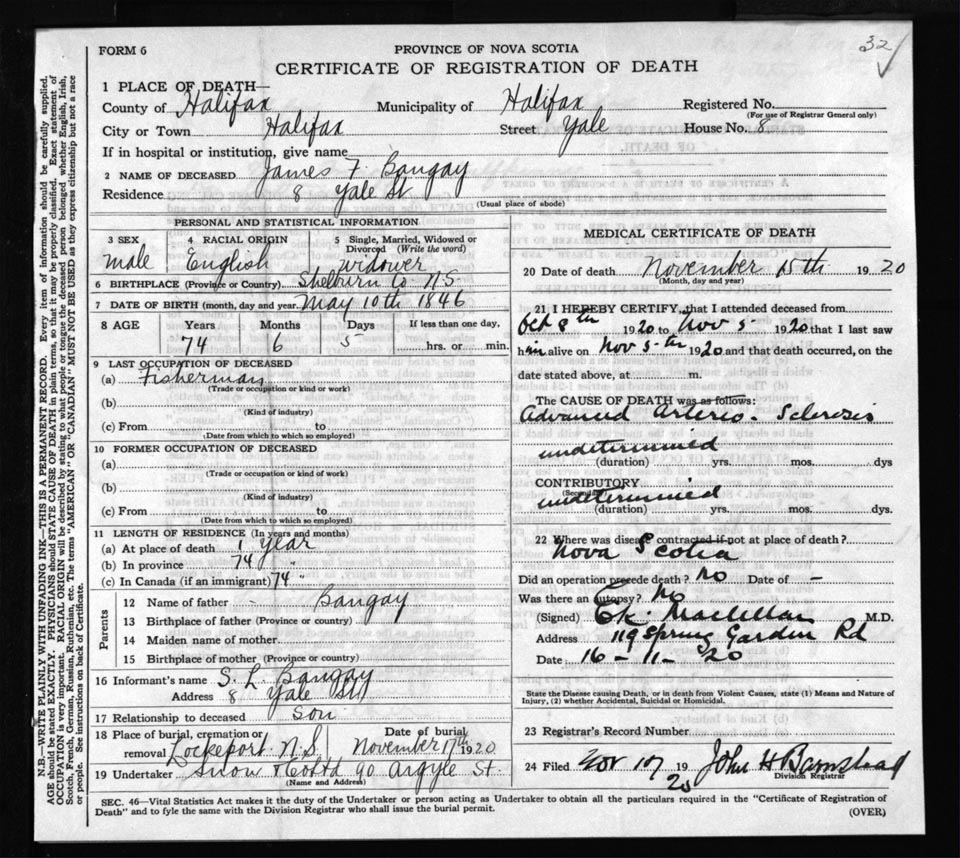 32
FORM 6
PROVINCE OF NOVA SCOTIA
CERTIFICATE OF REGISTRATION OF DEATH
1 PLACE OF DEATH—
County of Halifax Municipality of Halifax Registered No.
(For use of Registrar General only)
City or Town Halifax Street Yale House No. 8
If in hospital or institution, give name
2 NAME OF DECEASED James F. Bangay
Residence 8 Yale St.
(Usual place of abode)
PERSONAL AND STATISTICAL INFORMATION
3 SEX 4 RACIAL ORIGIN 5 Single, Married, Widowed or Divorced (Write the word)
male English widower
6 BIRTHPLACE (Province or Country) Shelburn Co. N.S.
7 DATE OF BIRTH (month, day and year) May 10th 1846
8 AGE Years Months Days If less than one day,
74 6 5 hrs. or min.
9 LAST OCCUPATION OF DECEASED
(a) Fisherman
(Trade or occupation or kind or work)
(b)
(Kind of industry)
(c) From to
(Date from which to which so employed)
10 FORMER OCCUPATION OF DECEASED
(a)
(Trade or occupation or kind of work)
(b)
(Kind of industry)
(c) From to
(Date from which to which so employed)
11 LENGTH OF RESIDENCE (In years and months)
(a) At place of death 1 year
(b) In province 74 "
(c) In Canada (if an immigrant) 74 "
Parents
12 Name of father - Bangay
13 Birthplace of father (Province or country)
14 Maiden name of mother
15 Birthplace of mother (Province or country)
16 Informant's name S. L. Bangay
Address 8 Yale St.
17 Relationship to deceased son
18 Place of burial, cremation or removal Lockeport N.S. Date of burial November 17th 1920
19 Undertaker Snow & Co Ltd 90 Argyle St.
(Name and Address)
MEDICAL CERTIFICATE OF DEATH
20 Date of death November 15th 1920
(Month, day and year)
21 I HEREBY CERTIFY, that I attended deceased from
Oct 8th 1920 to Nov 5- 1920 that I last saw
him alive on Nov 5-th 1920 and that death occurred, on the
date stated above, at m.
The CAUSE OF DEATH was as follows:
Advanced Arterio-Sclerosis
undetermined
(duration) yrs. mos. dys
CONTRIBUTORY
(Secondary)
undetermined
(duration) yrs. mos. dys.
22 Where was disease contracted if not at place of death?
Nova Scotia
Did an operation precede death? No Date of -
Was there an autopsy? No
(Signed) E.K. Maclellan M.D.
Address 119 Spring Garden Rd
Date 16-11-20
State the Disease causing Death, or in death from Violent Causes, state (1) Means and Nature of
Injury, (2) whether Accidental, Suicidal or Homicidal.
23 Registrar's Record Number
24 Filed Nov 17 1920 John H Barnstead
Division Registrar
SEC. 46—Vital Statistics Act makes it the duty of the Undertaker or person acting as Undertaker to obtain all the particulars required in the "Certificate of Registration of
Death" and to fyle the same with the Division Registrar who shall issue the burial permit.
(OVER)
N.B.—WRITE PLAINLY WITH UNFADING INK—THIS IS A PERMANENT RECORD. Every item of information should be carefully supplied.
AGE should be stated EXACTLY. PHYSICIANS should STATE CAUSE OF DEATH in plain terms, so that it may be properly classified. Exact statement of
OCCUPATION is very important. RACIAL ORIGIN will be described by stating to what people or tongue the deceased person belonged whether English, Irish,
Scotch, French, German, Russian, Ruthenian, etc. The terms "AMERICAN" OR "CANADIAN" MUST NOT BE USED as they express citizenship but not a race
or people. See instructions on back of Certificate.